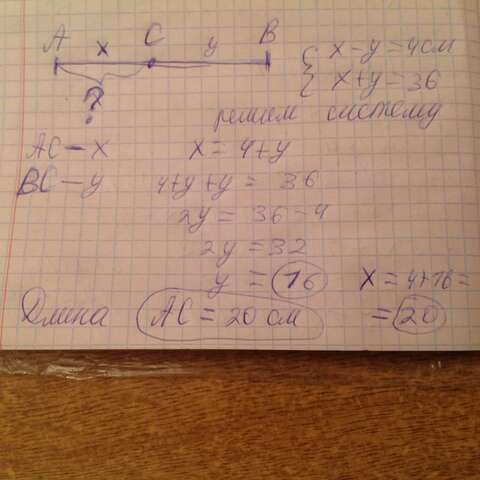 A x C y B
?
{ x - y = 4 см
x + y = 36
решем систему
AC - x x = 4 + y
BC - y 4 + y + y = 36
2y = 36 - 4
2y = 32
y = 16 x = 4 + 16 =
Длина AC = 20 см = 20